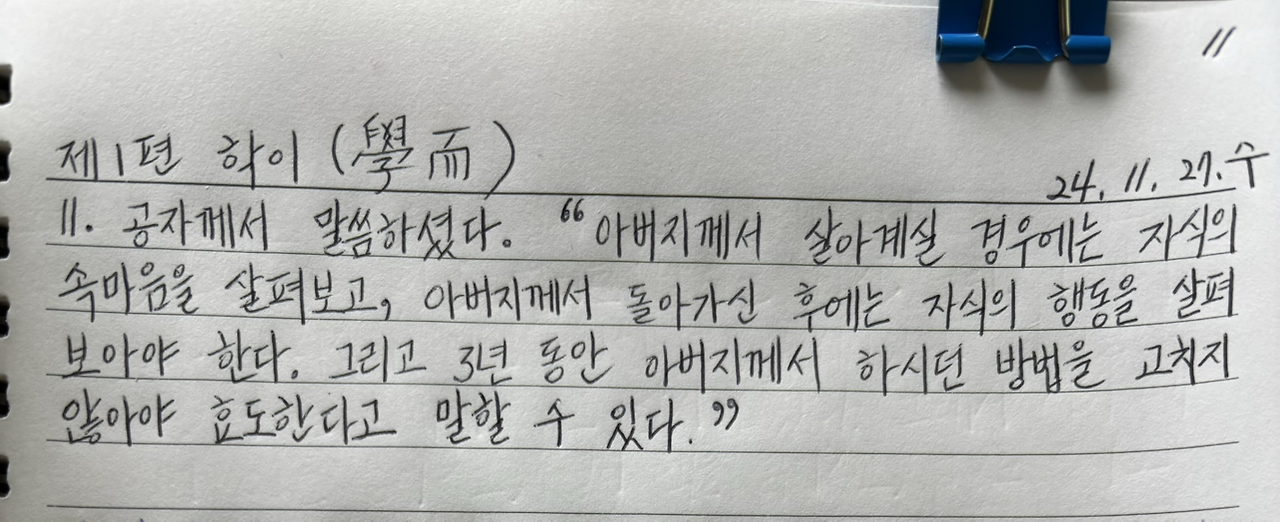 11
제1편 학이 (學而)
24. 11. 27. 수
11. 공자께서 말씀하셨다. "아버지께서 살아계실 경우에는 자식의
속마음을 살펴보고, 아버지께서 돌아가신 후에는 자식의 행동을 살펴
보아야 한다. 그리고 3년 동안 아버지께서 하시던 방법을 고치지
않아야 효도한다고 말할 수 있다."